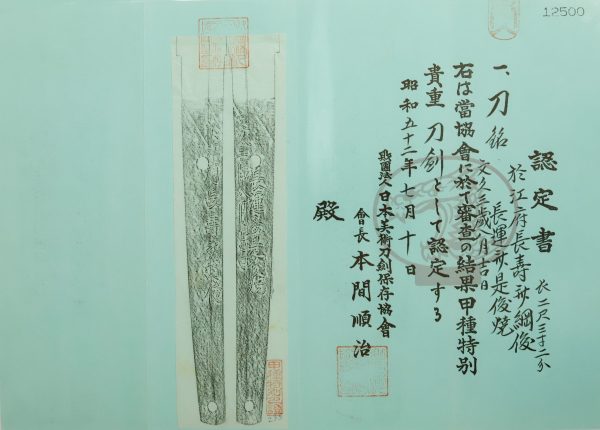 12500
認定書
一、刀 銘 於江府長寿斎綱俊
長運斎是俊焼
文久三歳八月吉日
長二尺三寸二分
右は當協會に於て審査の結果甲種特別
貴重刀剣として認定する
昭和五十二年七月十日
財團法人日本美術刀劍保存協會
會長 本間順治
殿